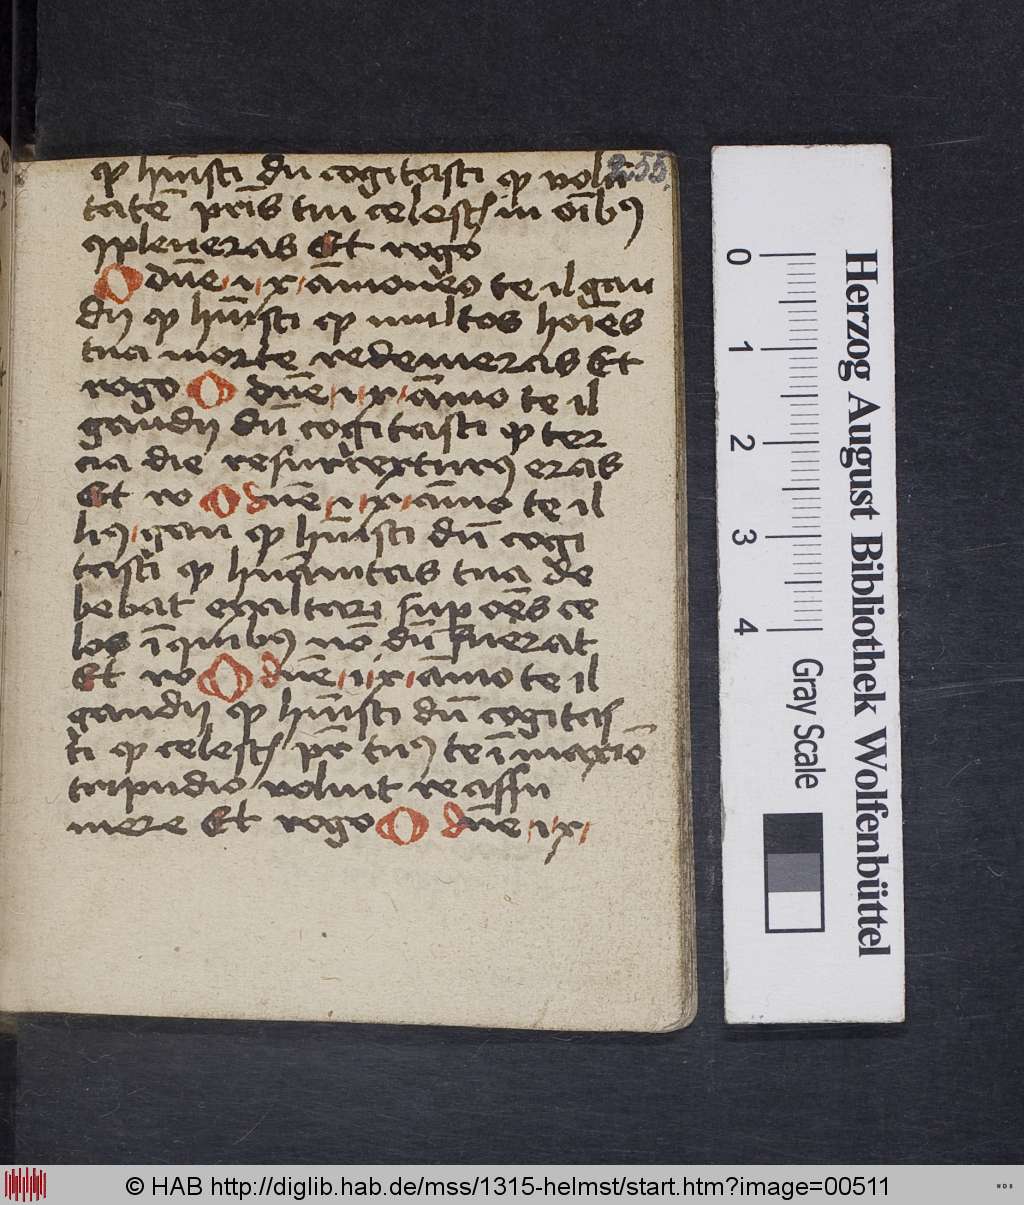 qꝫ hūisti dū cogitasti qꝫ volū
255
tatē pr̄is tui celestꝭ in oībꝯ
ꝯpleueras Et rogo
O dn̄e i x āmoneo te il gau
dij qꝫ hūisti qꝫ multos hoīes
tua morte redemeras Et
rogo O dn̄e i x āmo te il
gaudij dū cogitasti qꝫ ter
cia die resurrexturꝯ eras
Et ro O dn̄e i x āmo te il
liꝯ gau qꝫ hūisti dū cogi
tasti qꝫ huānitas tua de
bebat exaltari sup oēs ce
los ī quibꝯ nō dū fuerat
Et ro O dn̄e i x āmo te il
gaudij qꝫ hūisti dū cogitas
ti qꝫ celestꝭ pr̄ tuꝯ te ī maxīo
tripudio voluit reassu
mere Et rogo O dn̄e i x
Herzog August Bibliothek Wolfenbüttel
0 1 2 3 4
Gray Scale
© HAB http://diglib.hab.de/mss/1315-helmst/start.htm?image=00511